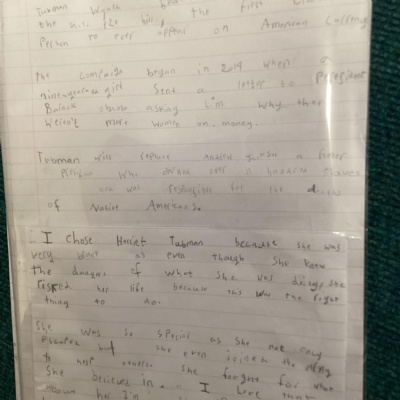 Tubman
the U.S. $20 bill, the first
Person to ever appear on American Currency
The campaign began in 2014 when a
girl sent a letter to President
Barack Obama asking him why there
weren't more women on money.
Tubman will replace Andrew a former
who owned over a hundred slaves
and was responsible for the
of Native Americans.
I chose Harriet Tubman because she was
very as even though she knew
the dangers of what she was doing, she
risked her life because this was the right
thing to do.
She was so special as she not only
escaped but she even the army
to help others. She fought for what
She believed in. I love that